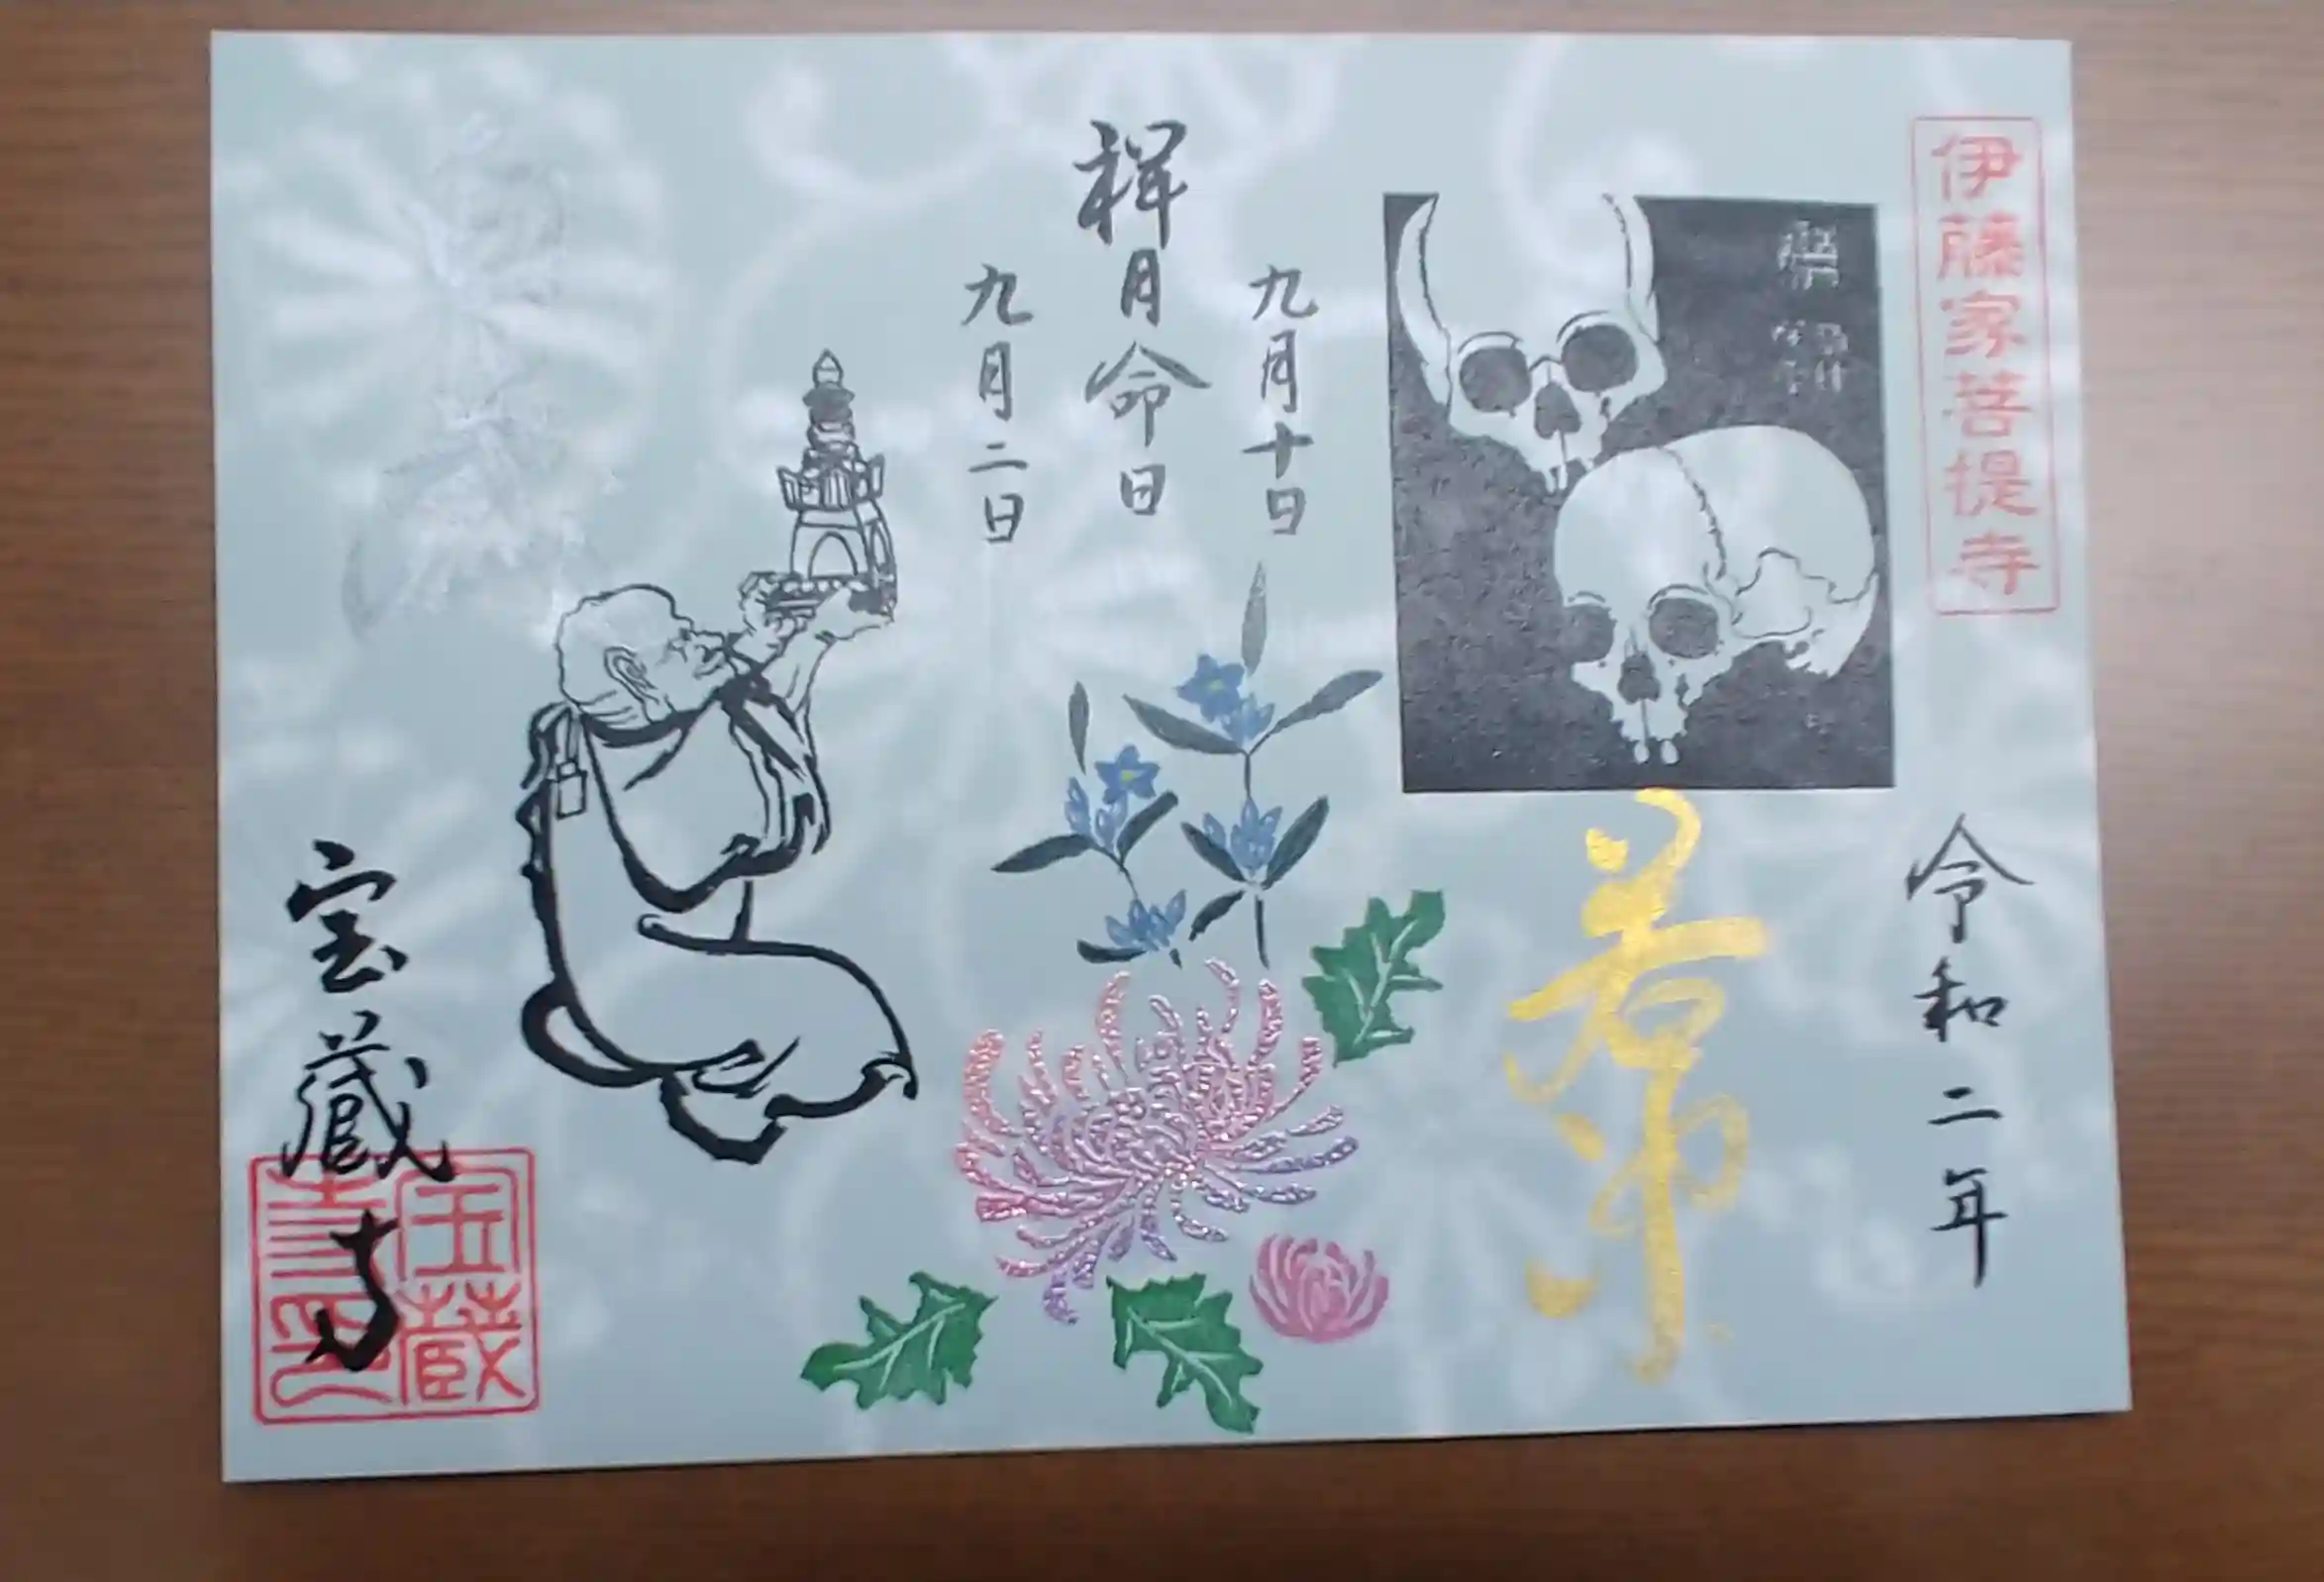 伊藤家菩提寺
令和二年
九月十日
祥月命日
九月二日
宝蔵寺
玉蔵寺印